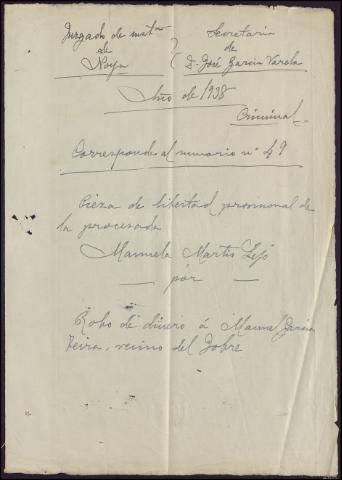 Juzgado de instón
de
Noya
Secretaria
de
D. José Garcia Varela
Año de 1938
Criminal
Corresponde al sumario nº 49
Pieza de libertad provisional de
la procesada
Manuela Martis Lijó
— por —
Robo de dinero á Manuel Garcia
Neira, vecino del Tobre